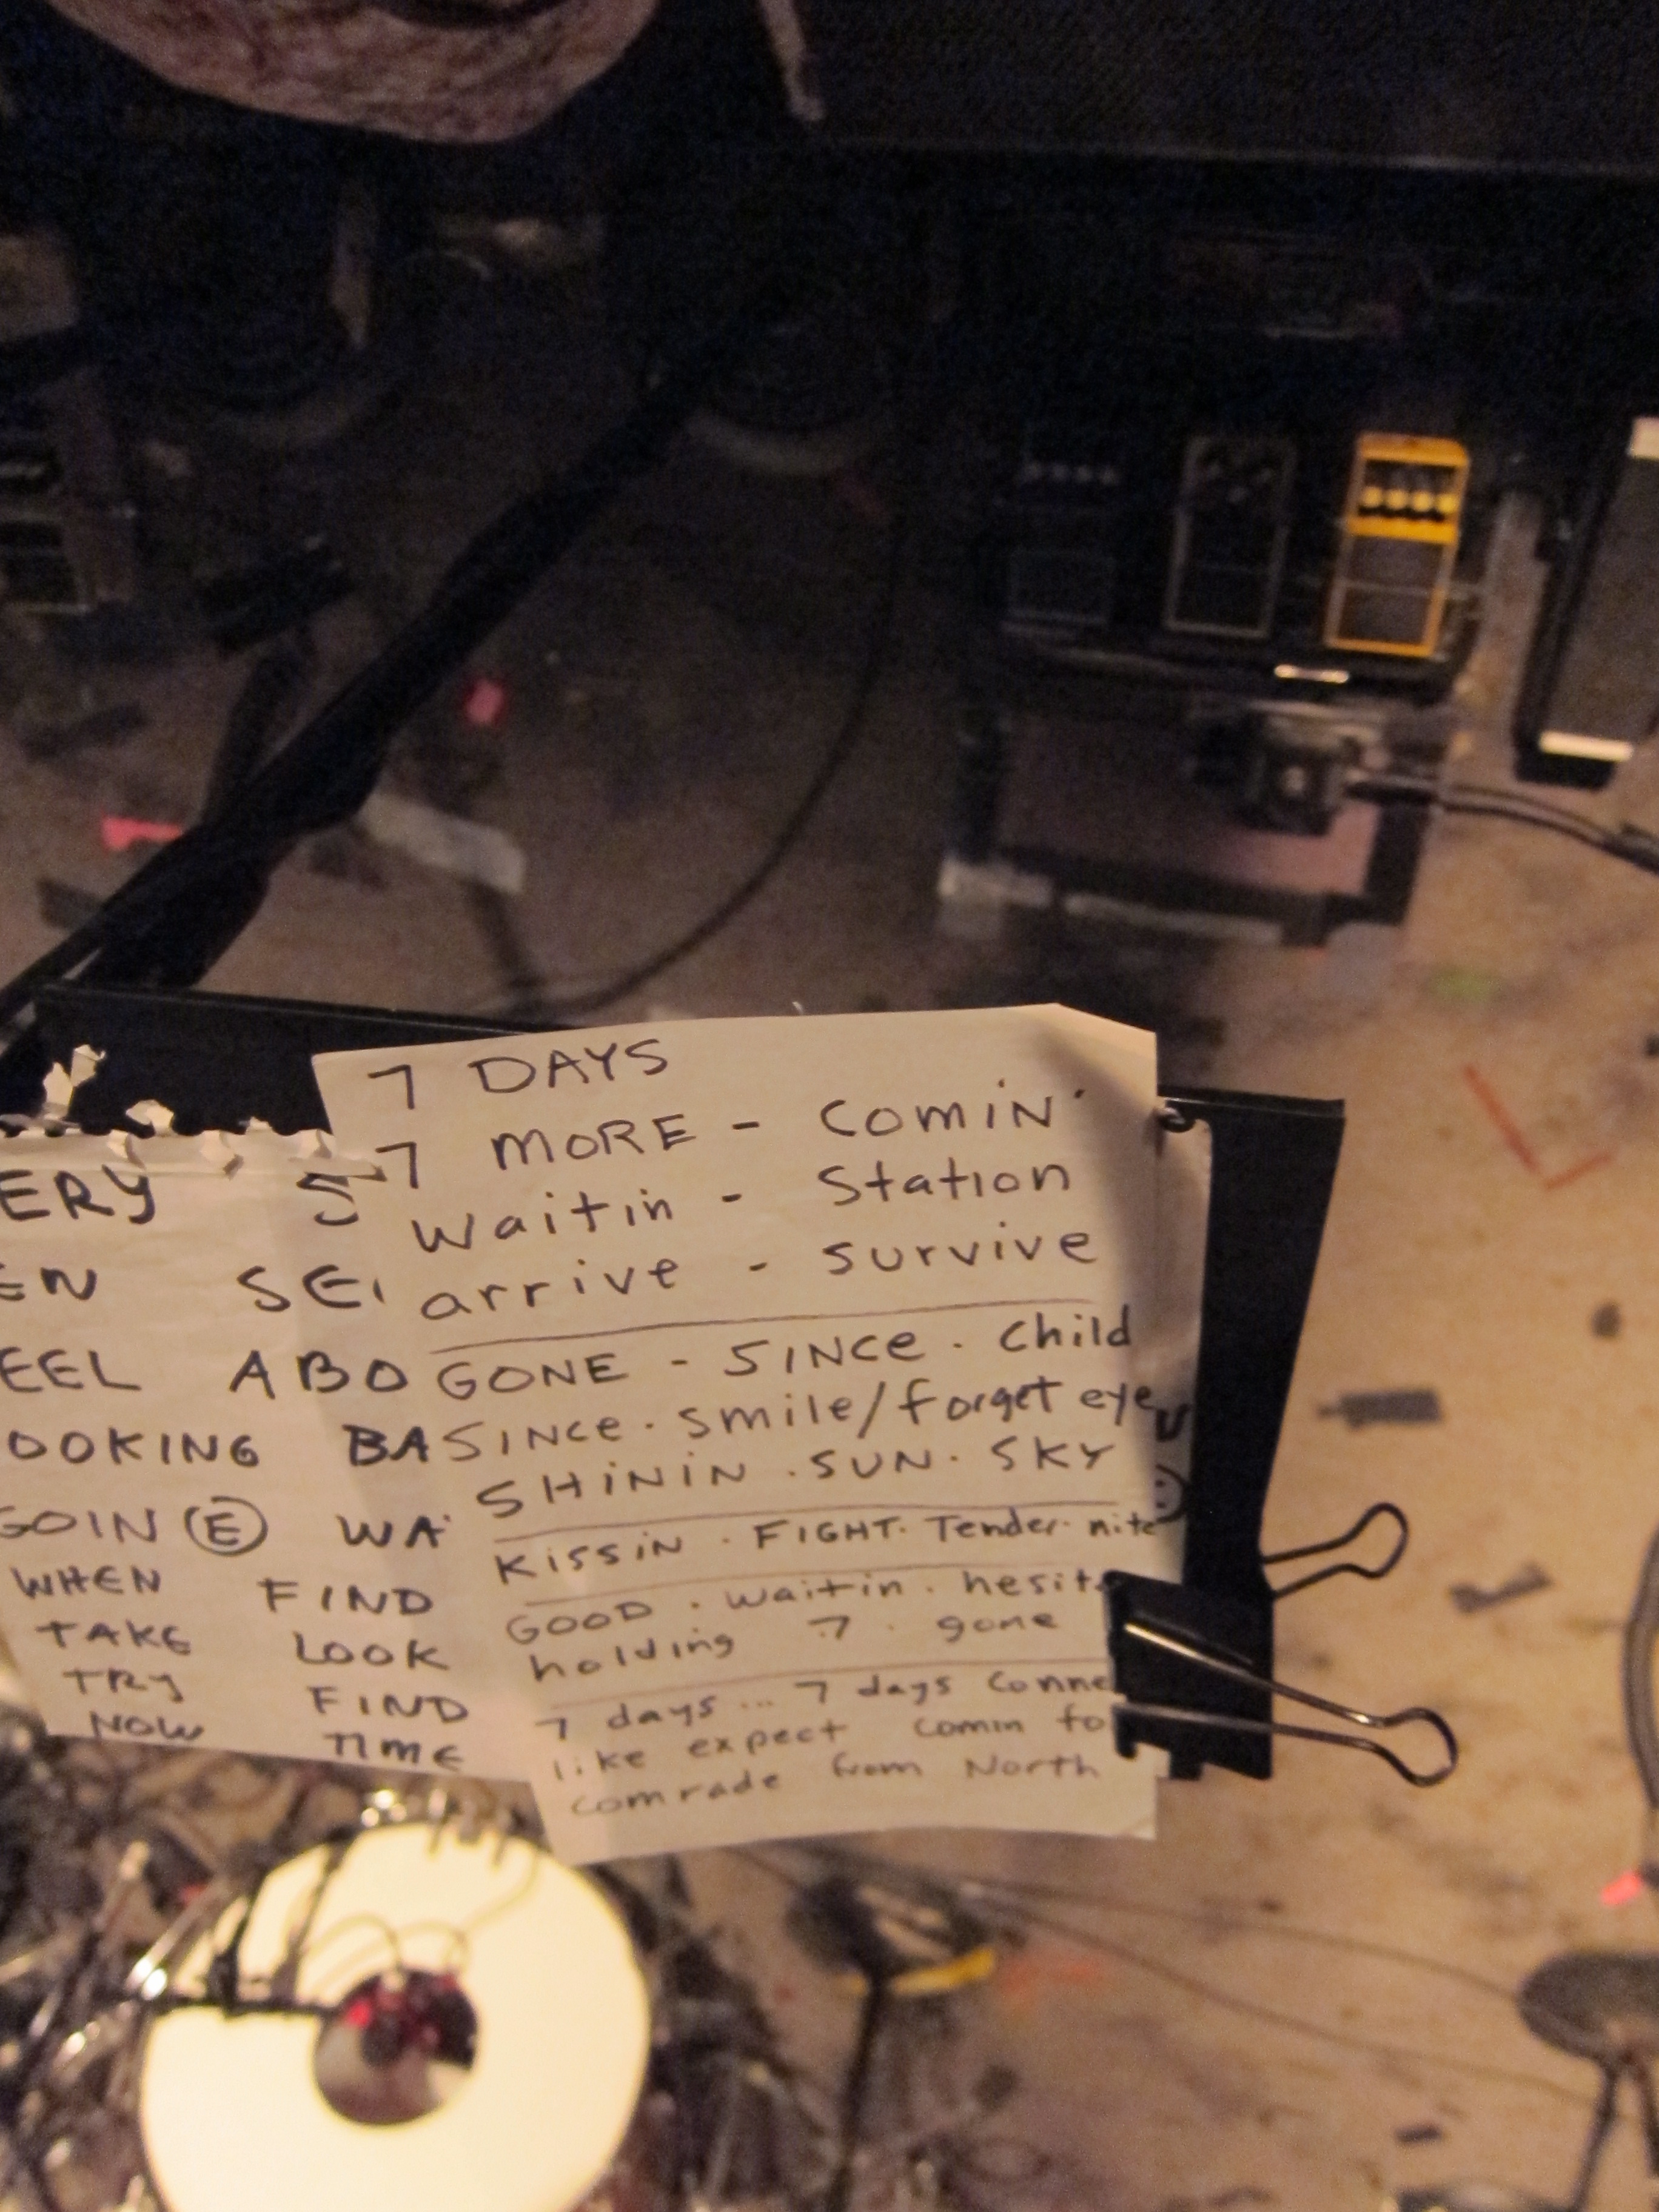 7 DAYS
7 MORE - COMIN'
Waitin - Station
arrive - survive
GONE - SINCE. Child
SINCE. smile/forget eye
SHININ. SUN. SKY
KISSIN. FIGHT. Tender. nite
GOOD. waitin. hesit
holding 7. gone
7 days... 7 days Conne
like expect comin fo
comrade from North
ERY 5
EN SE
EEL ABO
OOKING BA
GOIN (E) WA
WHEN FIND
TAKE LOOK
TRY FIND
NOW TIME